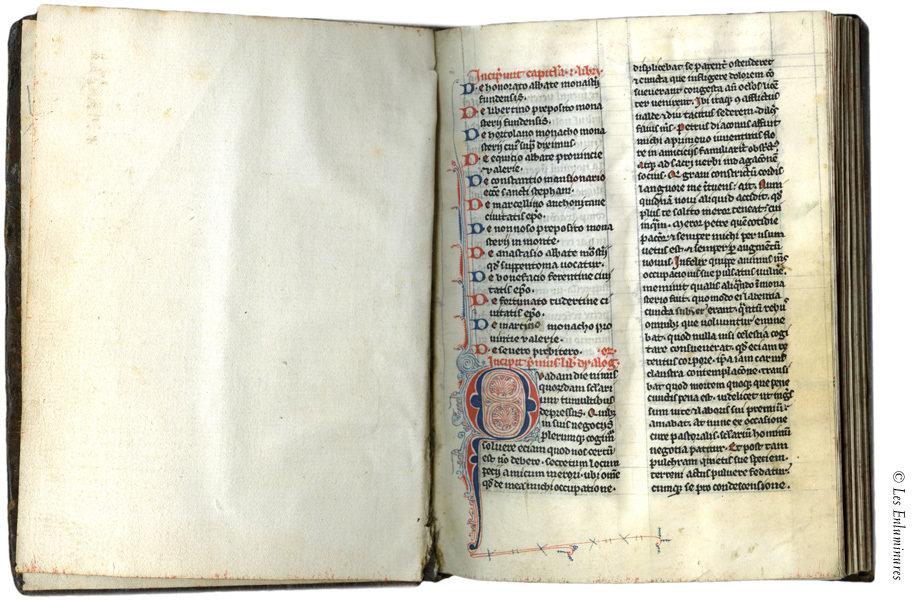 Incipiunt capitula .i. libri.
De honorato abbate monasterii
fundensis.
De libertino preposito mona
sterii fundensis.
De hortolano monacho mona
sterii cuius supra diximus.
De equicio abbate provincie
valerie.
De constantio mansionario
eccłe sancti stephani.
De marcellino anchonitane
civitatis epō.
De nonnoso preposito mona
sterii in monte.
De anastasio abbate mōstii
qđ suppentoma vocatur.
De bonefacio ferentine civi
tatis epō.
De fortunato tudertine ci
vitatis epō.
De martino monacho pro
vintie valerie.
De severo prebitero.
Incipit primus lib dyalogor.
Quadam die nimiis
quorundam secłari
um tumultibus
depressus. Quibꝰ
in suis negociis
plerumque cogimur
solvere etiam quod nos certū
est nō debere. secretum locum
petii amicum merori. ubi ome
qđ de mea michi occupatione.
displicebat se patenter ostenderet
et cuncta que infligere dolorem cō
sueverant congesta añ oclos licenter
venirent. Ibi itaq; cū afflictus
valde et diu tacitus sederem. dilectissimus
filius mē. Petrus diaconus affuit
michi a primevo iuventutis flo
re in amiciciis familiariter obstrictus.
atq; ad sacri verbi indagacionē
socius. Qui gravi constrictum cordis
languore me intuens. ait. Num
quidnam novi aliquid accidit. qđ
plus te solito meror teneat. cui
inquam. Meror petre quem cotidie
pacior. et semper michi per usum
vetus est. et semper per augmentū
novus. Infelix quippe animus mēs
occupationis sue pulsatus vulnere
meminit qualis aliquando in mona
sterio fuit. quomodo ei labentia
cuncta subter erant. quantum rebus
omnibus que volvuntur emine
bat. quod nulla nisi celestia cogi
tare consueverat. qđ eciam re
tentus corpore. ipsa iam carnis
claustra contemplacione transi
bat. quod mortem quoque que pene
cunctis pena est. videlicet ut ingressum
vite et laboris sui premium
amabat. At nunc ex occasione
cure pastoralis. secłarium hominū
negotia patitur. Et post tam
pulchram quietis sue speciem.
terreni actus pulvere fedatur.
cumque se pro condescensione.
© Les Enluminures